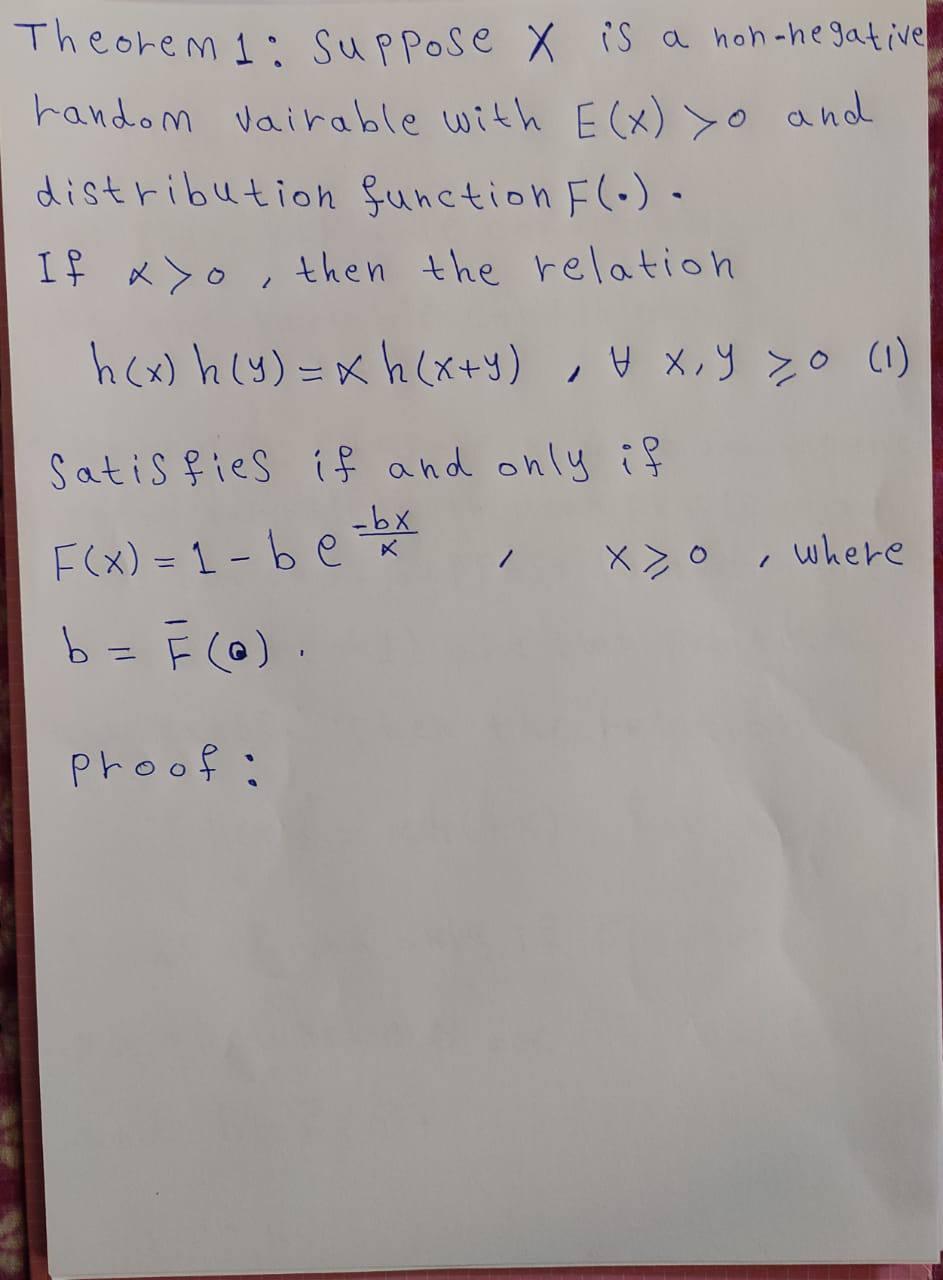 Theorem 1: Suppose X is a non-negative
random vairable with E(x) > 0 and
distribution function F(·).
If α > 0, then the relation
h(x) h(y) = α h(x+y) , ∀ x, y ⩾ 0 (1)
Satisfies if and only if
F(x) = 1 - b e^{-bx/α} , x ⩾ 0 , where
b = F̄(0).
proof: